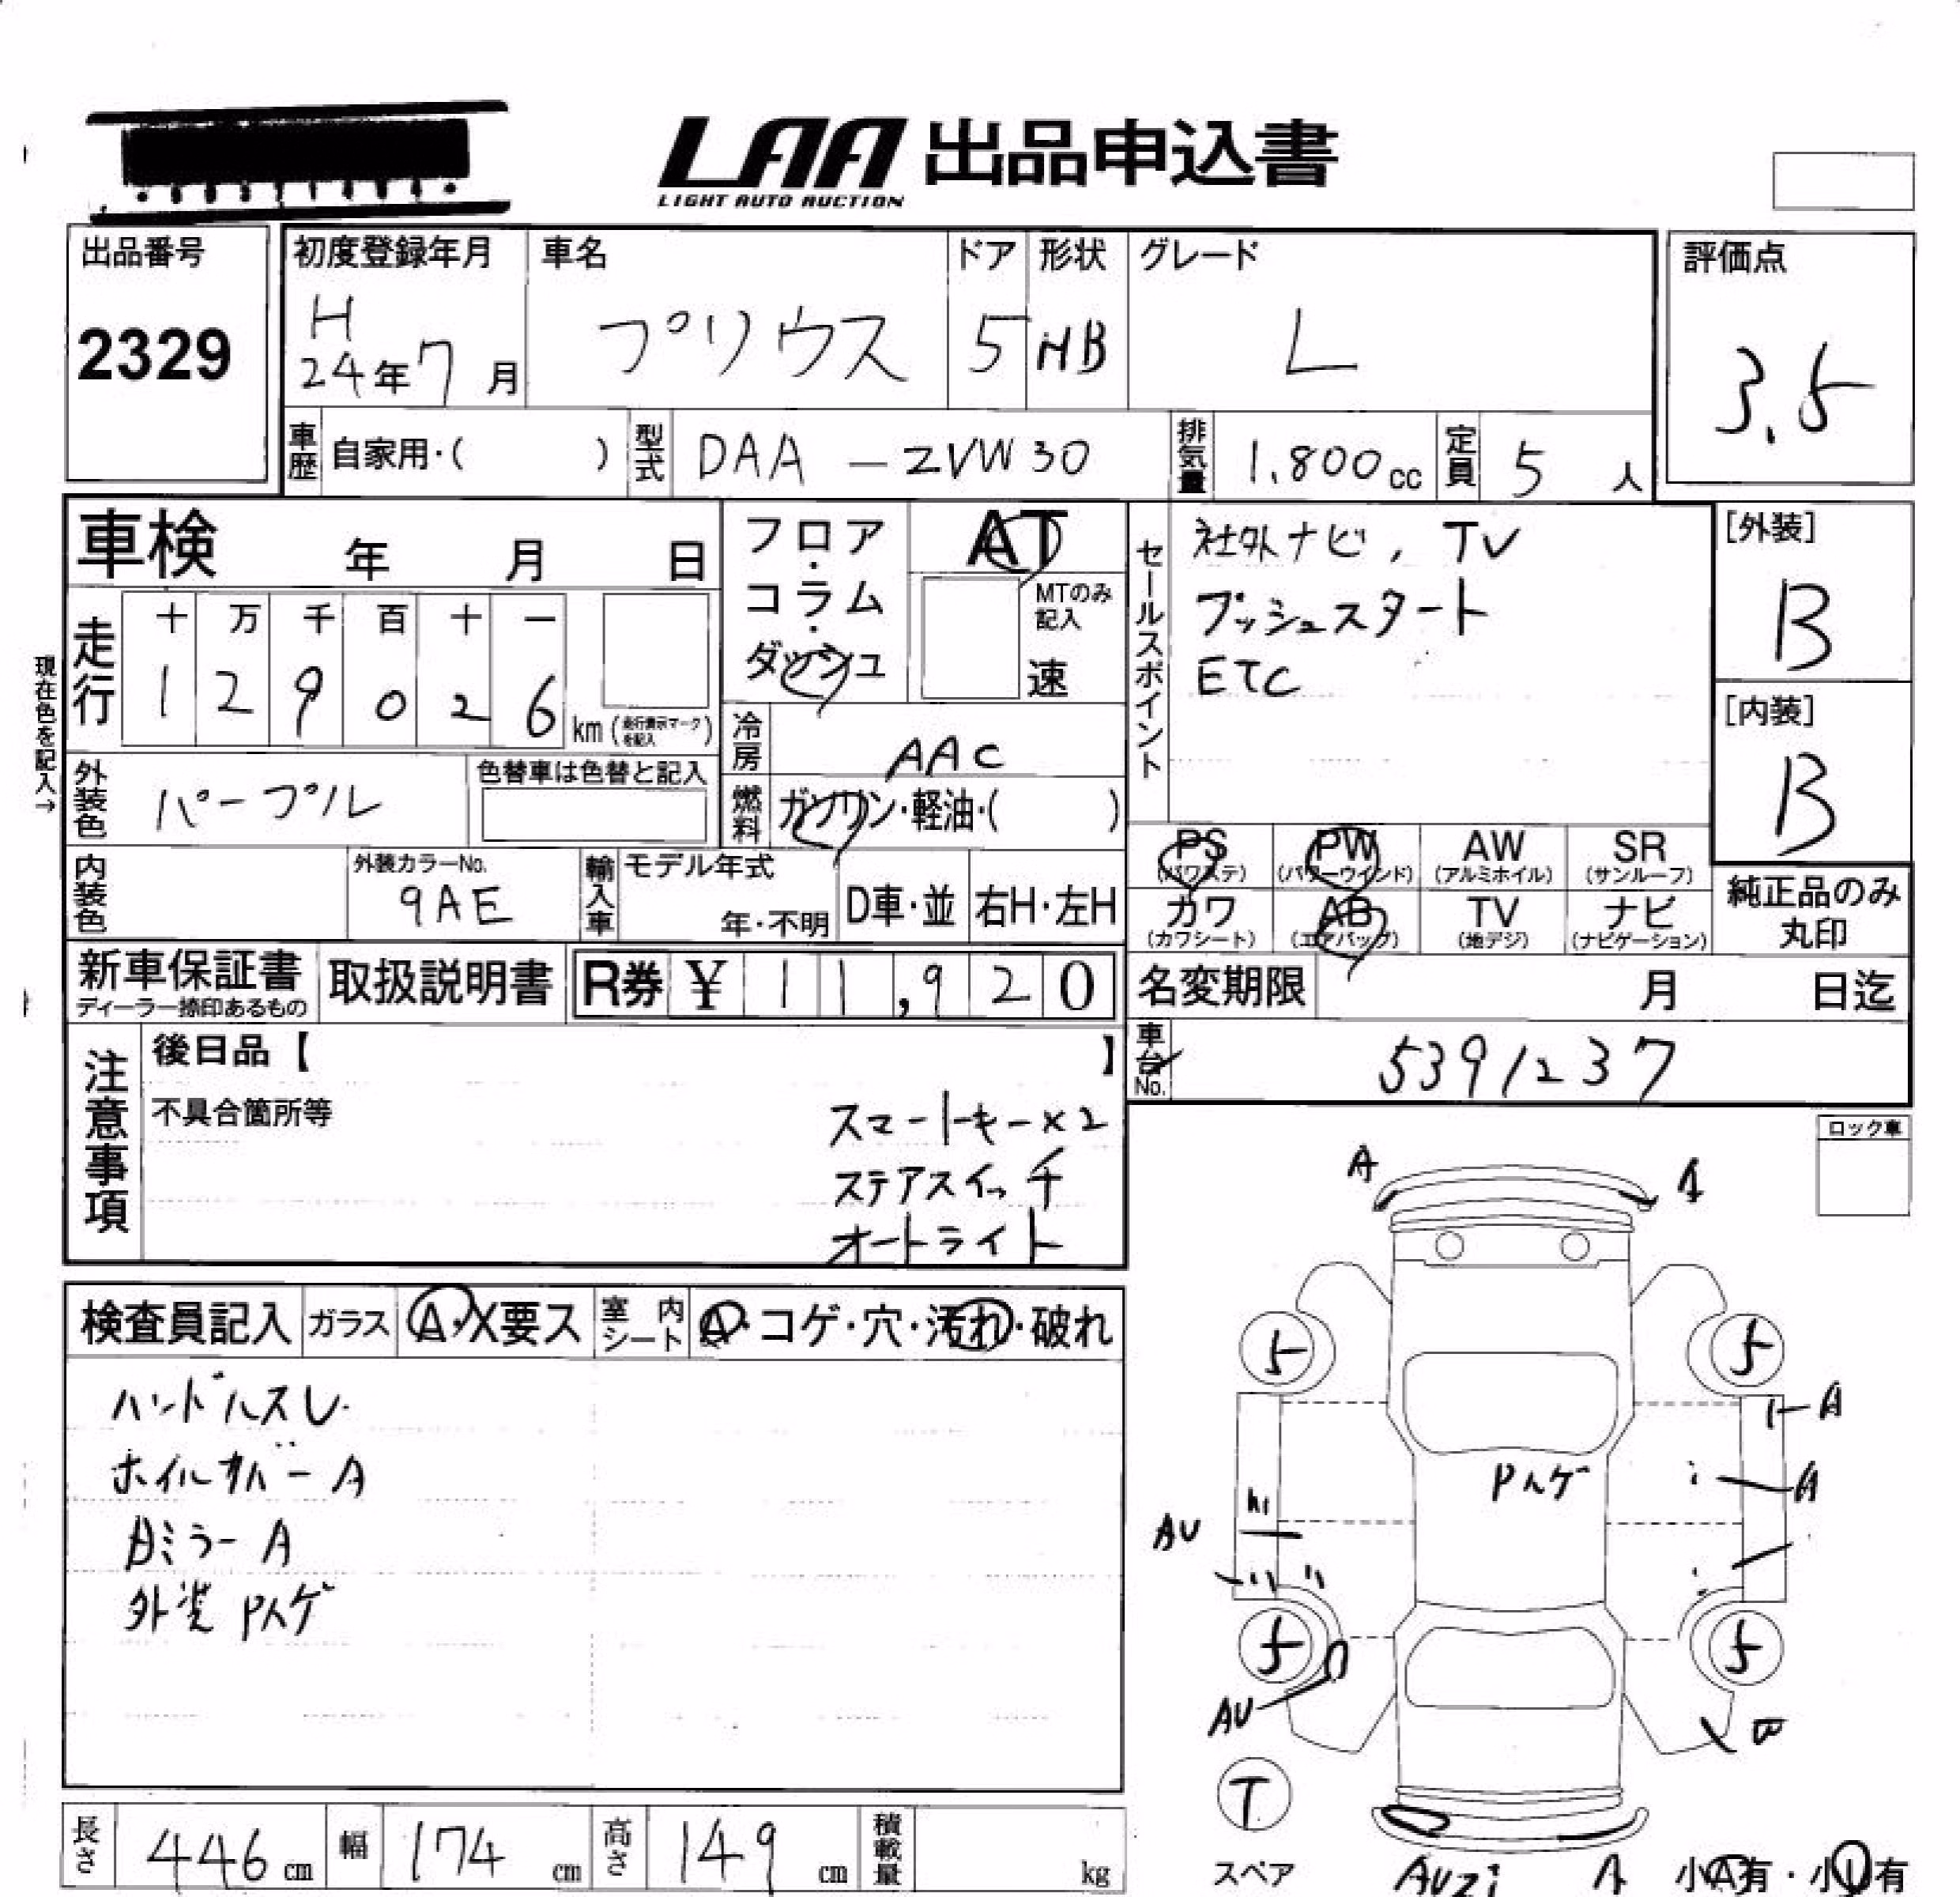 LAA 出品申込書
LIGHT AUTO AUCTION
出品番号
2329
初度登録年月
H
24年7月
車名
プリウス
ドア
5
形状
HB
グレード
L
評価点
3.5
車歴
自家用・( )
型式
DAA-ZVW30
排気量
1.800cc
定員
5人
車検 年 月 日
フロア・コラム・ダッシュ
AT
MTのみ記入
速
セールスポイント
社外ナビ, TV
プッシュスタート
ETC
[外装]
B
[内装]
B
現在色を記入→
走行
十 万 千 百 十 一
1 2 9 0 2 6 km (走行表示マークを記入)
冷房
AAC
外装色
パープル
色替車は色替と記入
燃料
ガソリン・軽油・( )
PS
(パワステ)
PW
(パワーウインド)
AW
(アルミホイル)
SR
(サンルーフ)
カワ
(カワシート)
AB
(エアバッグ)
TV
(地デジ)
ナビ
(ナビゲーション)
純正品のみ
丸印
内装色
外装カラーNo.
9AE
輸入車
モデル年式
年・不明
D車・並
右H・左H
新車保証書
ディーラー捺印あるもの
取扱説明書
R券 ¥ 11,920
名変期限 月 日迄
車台No.
5391237
注意事項
後日品【 】
不具合箇所等
スマートキー×2
ステアスイッチ
オートライト
ロック車
検査員記入
ガラス
A・X要ス
室内シート
A・コゲ・穴・汚れ・破れ
ハンドルスレ
ホイルカバーA
外装Pハゲ
A
A
5
5
A
A
Pハゲ
AU
5
5
AU
T
スペア
A
小A有・小U有
長さ
446cm
幅
174cm
高さ
149cm
積載量
kg